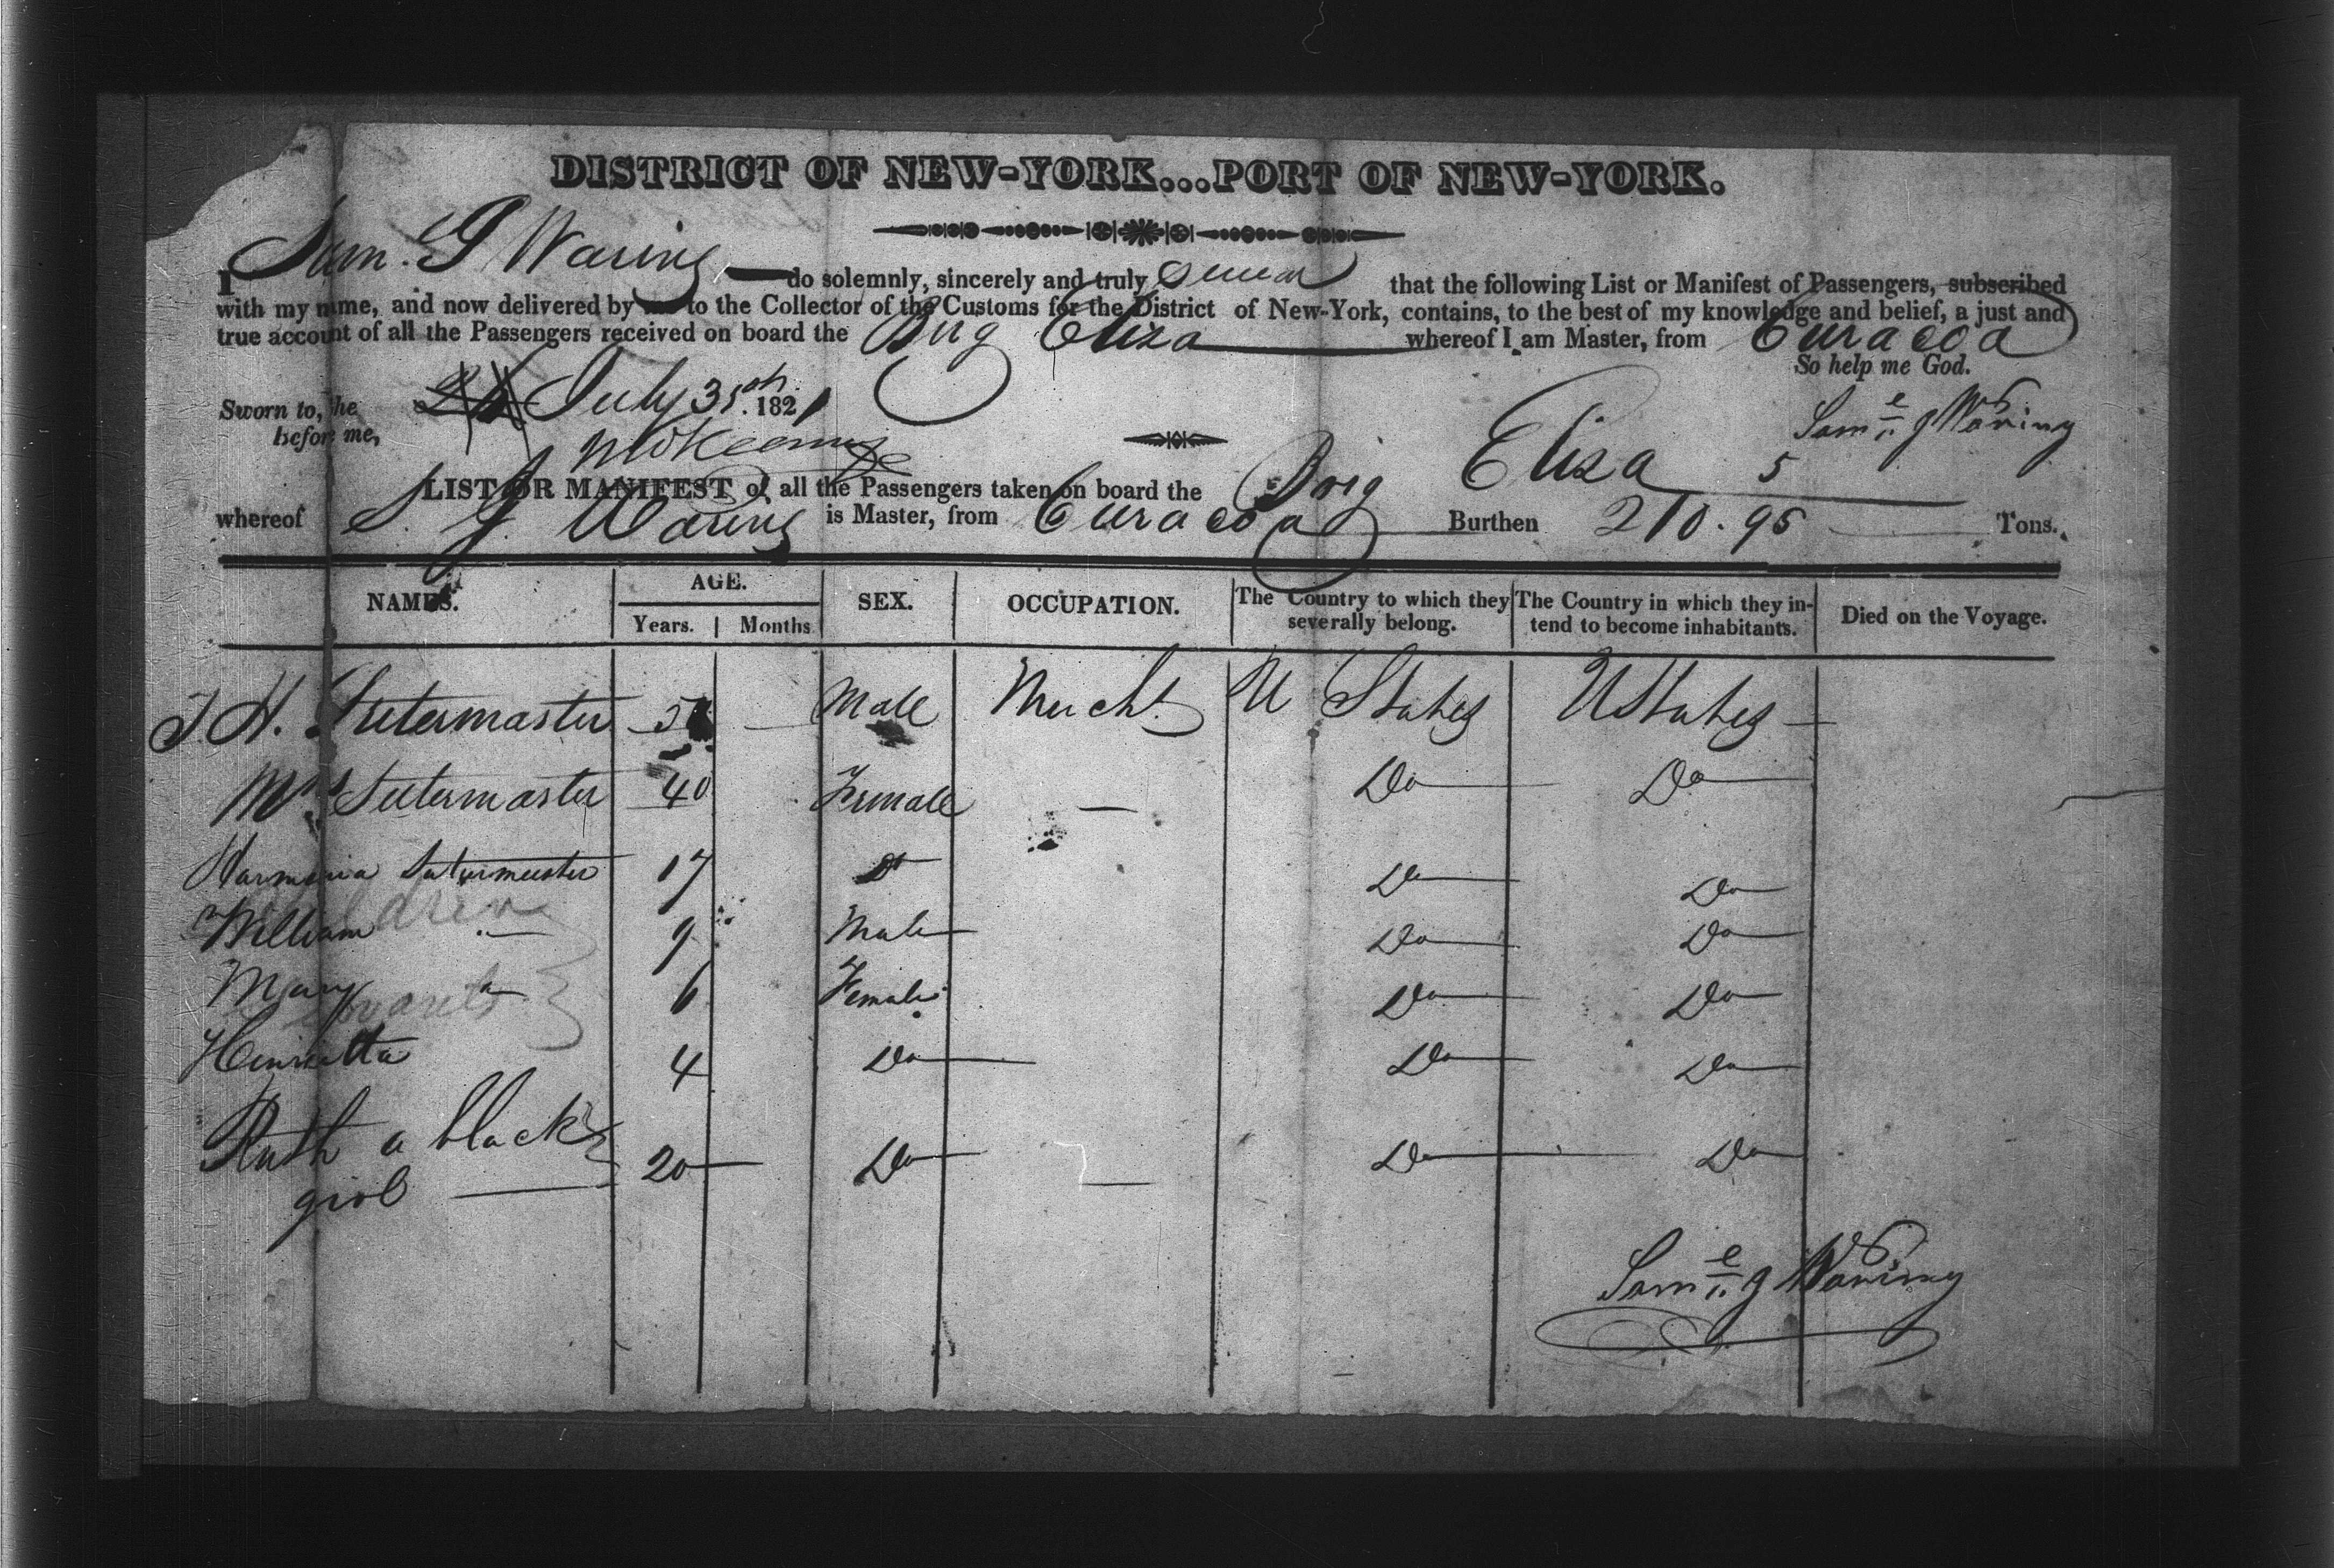 DISTRICT OF NEW-YORK...PORT OF NEW-YORK.
I Saml. G Waring do solemnly, sincerely and truly swear that the following List or Manifest of Passengers, subscribed
with my name, and now delivered by to the Collector of the Customs for the District of New-York, contains, to the best of my knowledge and belief, a just and
true account of all the Passengers received on board the Brig Eliza whereof I am Master, from Curacoa
So help me God.
Sworn to, the July 31st 1821
before me,
Saml. G Waring
LIST OR MANIFEST of all the Passengers taken on board the Brig Eliza
whereof S. G. Waring is Master, from Curacoa Burthen 210.95 Tons.
NAMES. AGE. SEX. OCCUPATION. The Country to which they severally belong. The Country in which they intend to become inhabitants. Died on the Voyage.
Years. Months
J. H. Sutermaster Male Mercht. U States U States
Mrs Sutermaster 40 Female — Do Do
Harmonia Sutermeister 17 Do Do Do
William 9 Male Do Do
Mary 6 Female Do Do
Henrietta 4 Do Do Do
Ruth a black 20 Do — Do Do
girl
Saml. G Waring